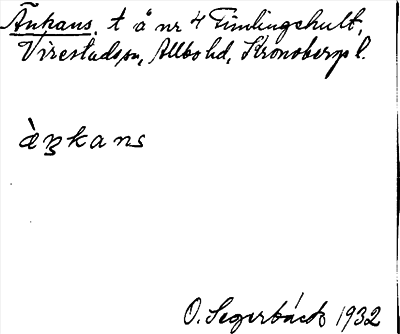 Änkans, t å nr 4 Timlingshult,
Virestads sn, Allbo hd, Kronobergs l.
àŋkans
O. Segerbäck 1932